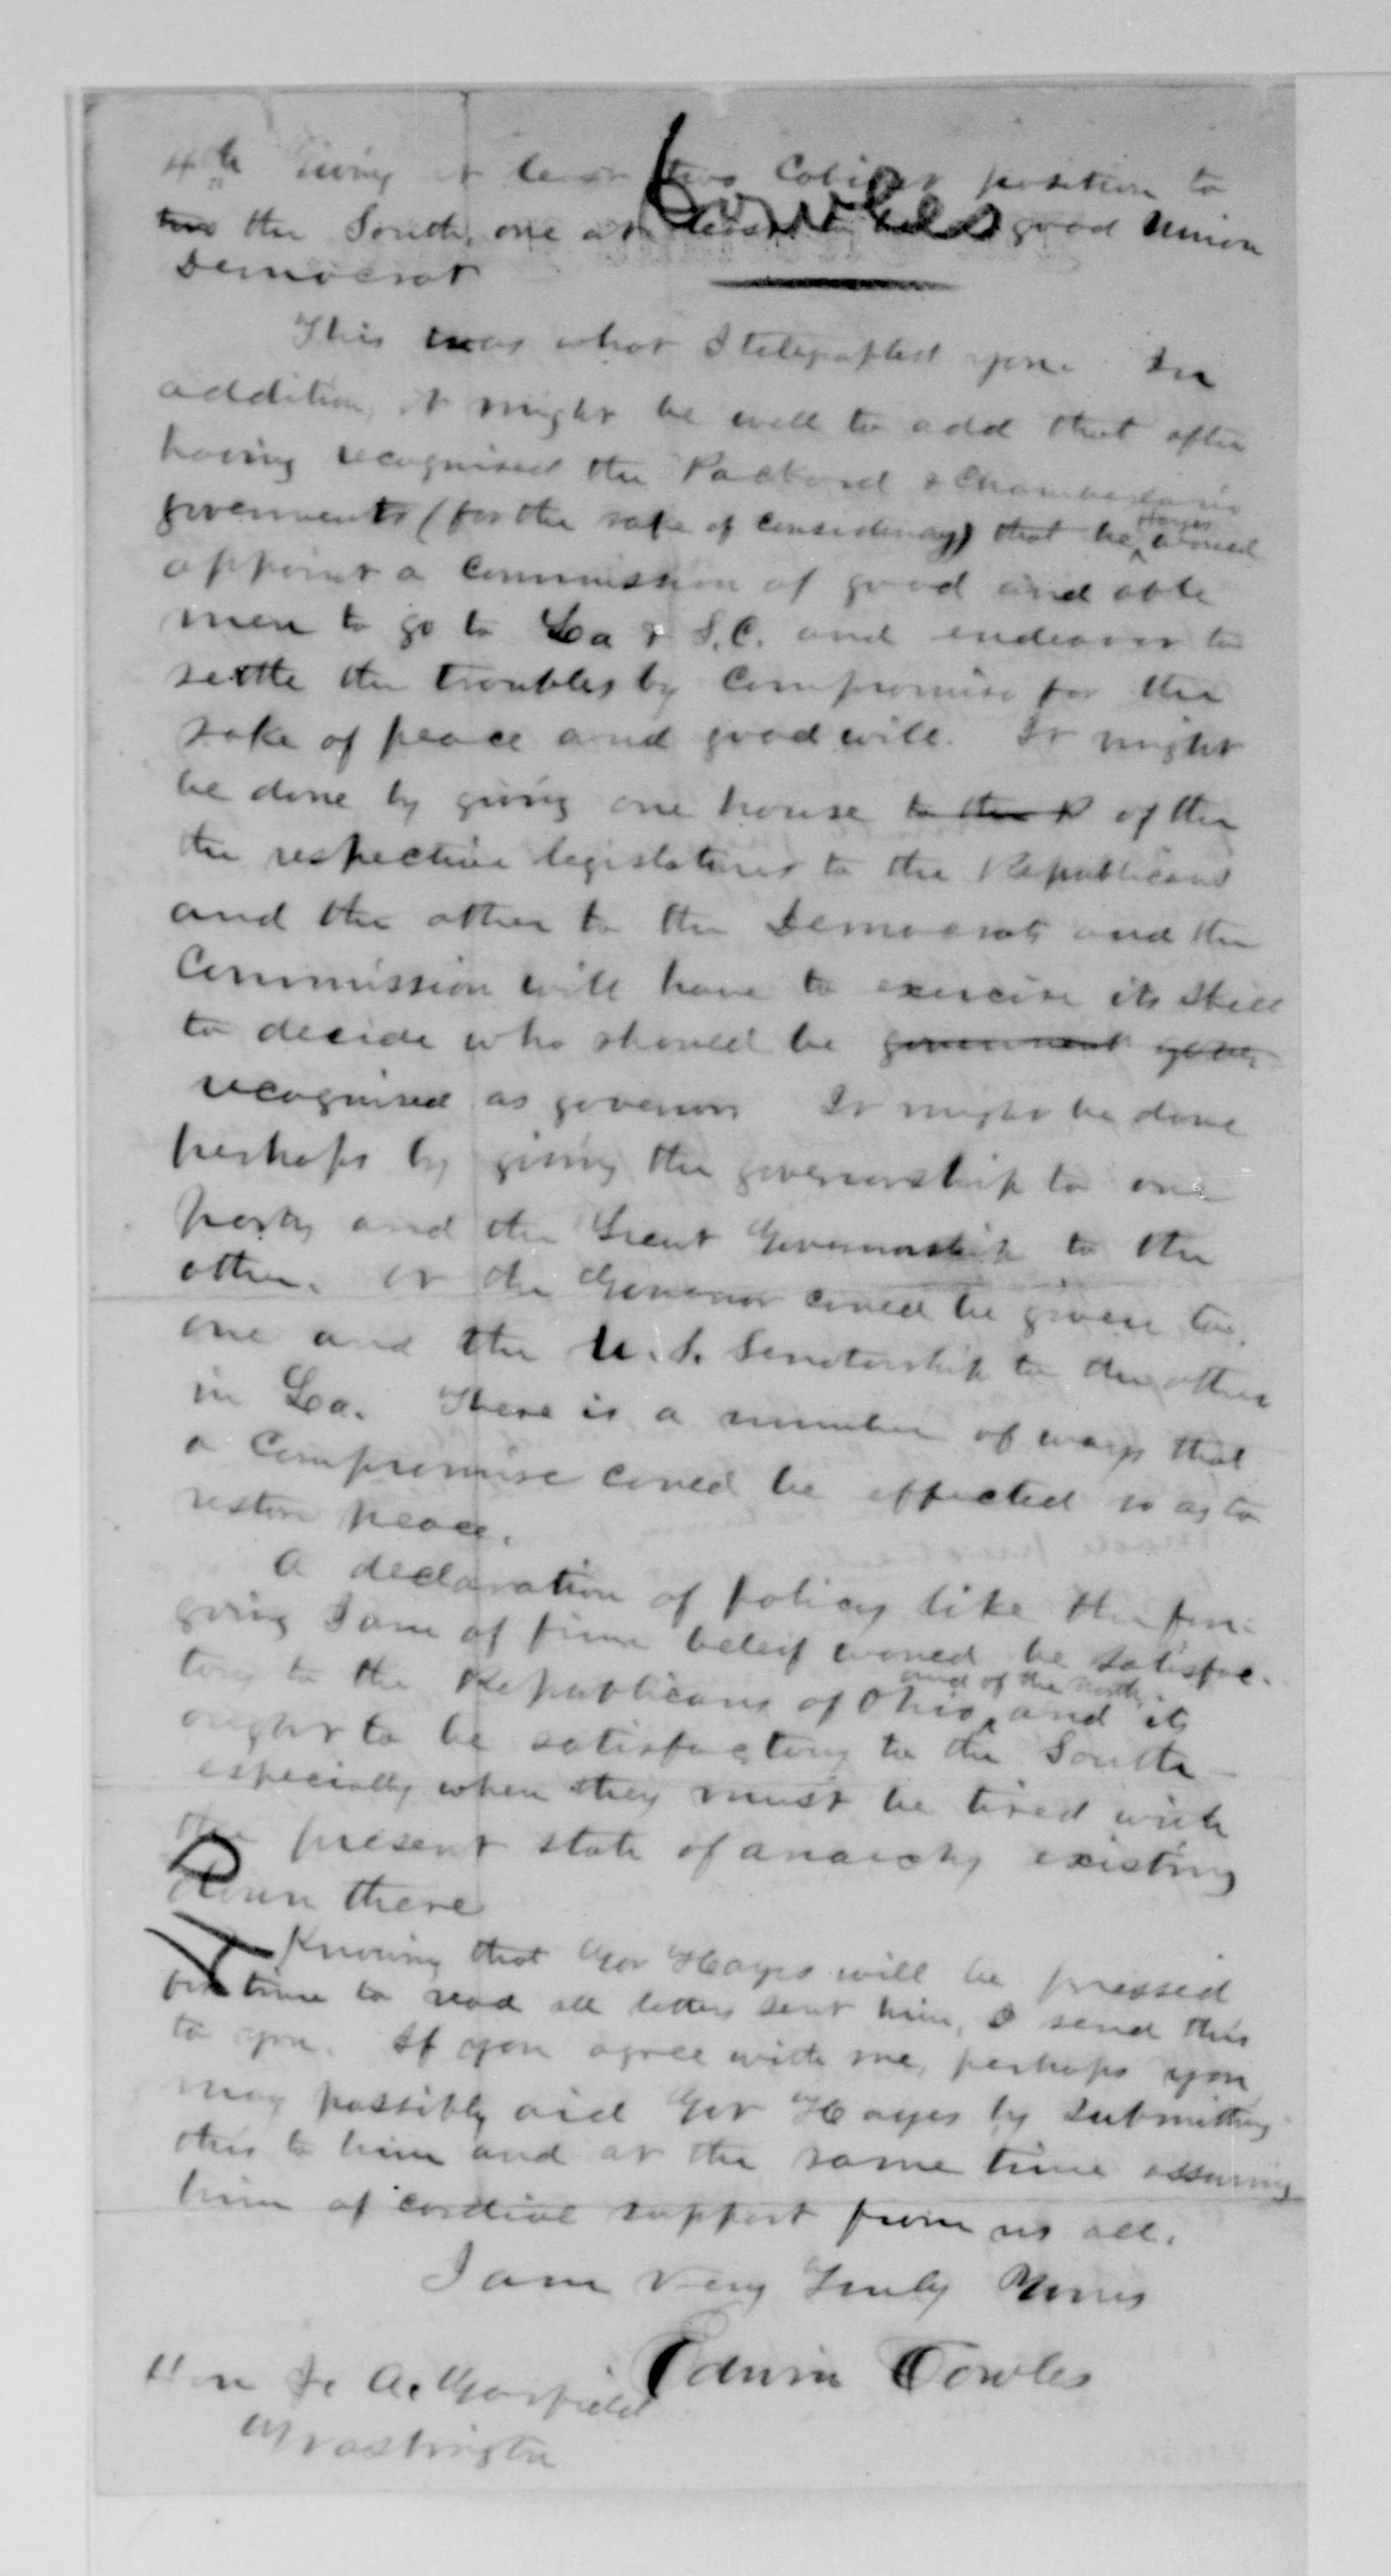 4th Giving at least two Cabinet position to
Cowles
two the South, one at least to be a good Union
Democrat
This was what I telegraphed you. In
addition, it might be well to add that after
having recognised the Packard & Chamberlain
governments (for the sake of consistency) that he, Hayes would
appoint a Commission of good and able
men to go to La & S.C. and endeavor to
settle the troubles by Compromise for the
sake of peace and good will. It might
be done by giving one house to the R of the
the respective legislatures to the Republicans
and the other to the Democrats and the
Commission will have to exercise its skill
to decide who should be government
recognised as governor It might be done
perhaps by giving the governorship to one
party and the Lieut Governorship to the
other. or the Governor could be given to
one and the U.S. Senatorship to the other
in La. There is a number of ways that
a Compromise could be effected so as to
restore peace.
A declaration of policy like the fore-
going I am of firm beleif would be satisfac-
tory to the Republicans of Ohio and of the North, and it
ought to be satisfactory to the South
especially when they must be tired with
the present state of anarchy existing
down there
Knowing that Gov Hayes will be pressed
for time to read all letters sent him, I send this
to you. If you agree with me, perhaps you
may possibly aid Gov Hayes by submitting
this to him and at the same time assuring
him of cordial support from us all.
I am Very Truly Yours
Edwin Cowles
Hon J. A. Garfield
Washington